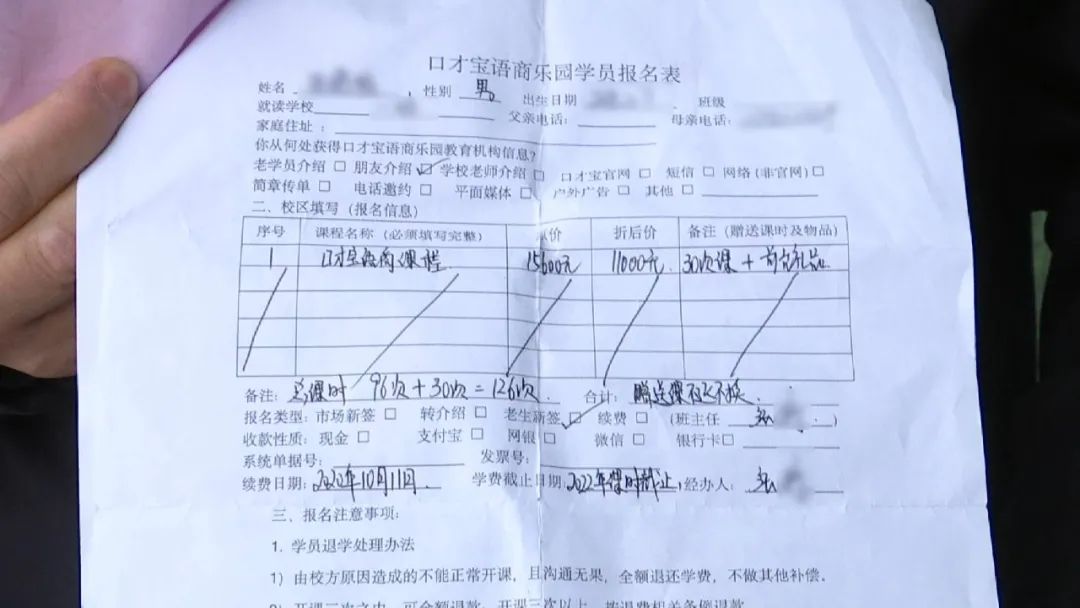 口才宝语商乐园学员报名表
姓名 性别 男 出生日期 班级
就读学校 父亲电话： 母亲电话：
家庭住址：
你从何处获得口才宝语商乐园教育机构信息？
老学员介绍 □ 朋友介绍 ☑ 学校老师介绍 □ 口才宝官网 □ 短信 □ 网络(非官网) □
简章传单 □ 电话邀约 □ 平面媒体 □ 户外广告 □ 其他 □
二、校区填写（报名信息）
序号 课程名称（必须填写完整） 价 折后价 备注（赠送课时及物品）
1 口才宝语商课程 15600元 11000元 30次课 + 礼品
备注：总课时 96次+30次=126次 合计：赠送课不退不换
报名类型：市场新签 □ 转介绍 □ 老生新签 ☑ 续费 □ （班主任 张 ）
收款性质：现金 □ 支付宝 □ 网银 □ 微信 □ 银行卡 □
系统单据号： 发票号：
续费日期：2020年10月11日 学费截止日期：2022年课时截止，经办人：张
三、报名注意事项：
1. 学员退学处理办法
1）由校方原因造成的不能正常开课，且沟通无果，全额退还学费，不做其他补偿。
2）开课三次之内，可全额退款；开课三次以上，按退费相关条例退款